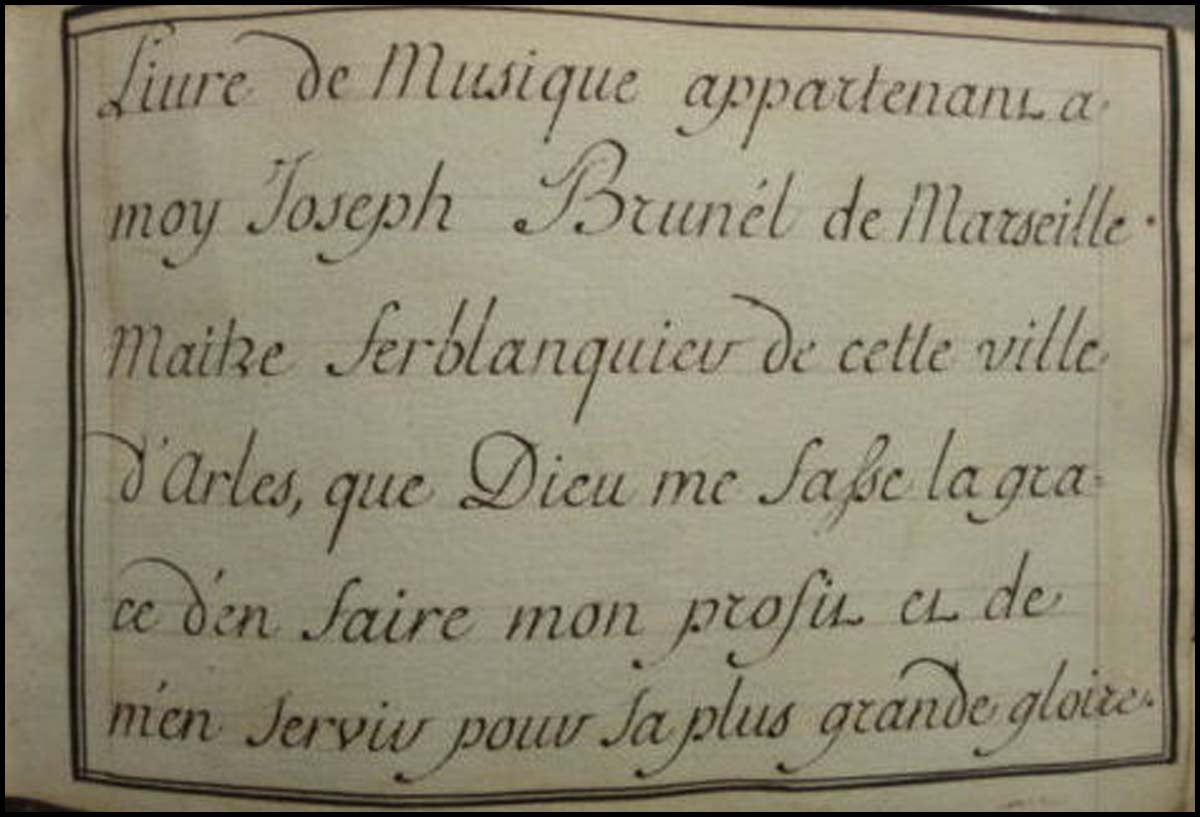 Livre de Musique appartenant a
moy Joseph Brunél de Marseille.
Maitre ferblanquier de cette ville
d'Arles, que Dieu me fasse la gra=
ce d'en faire mon profit et de
m'en servir pour sa plus grande gloire.